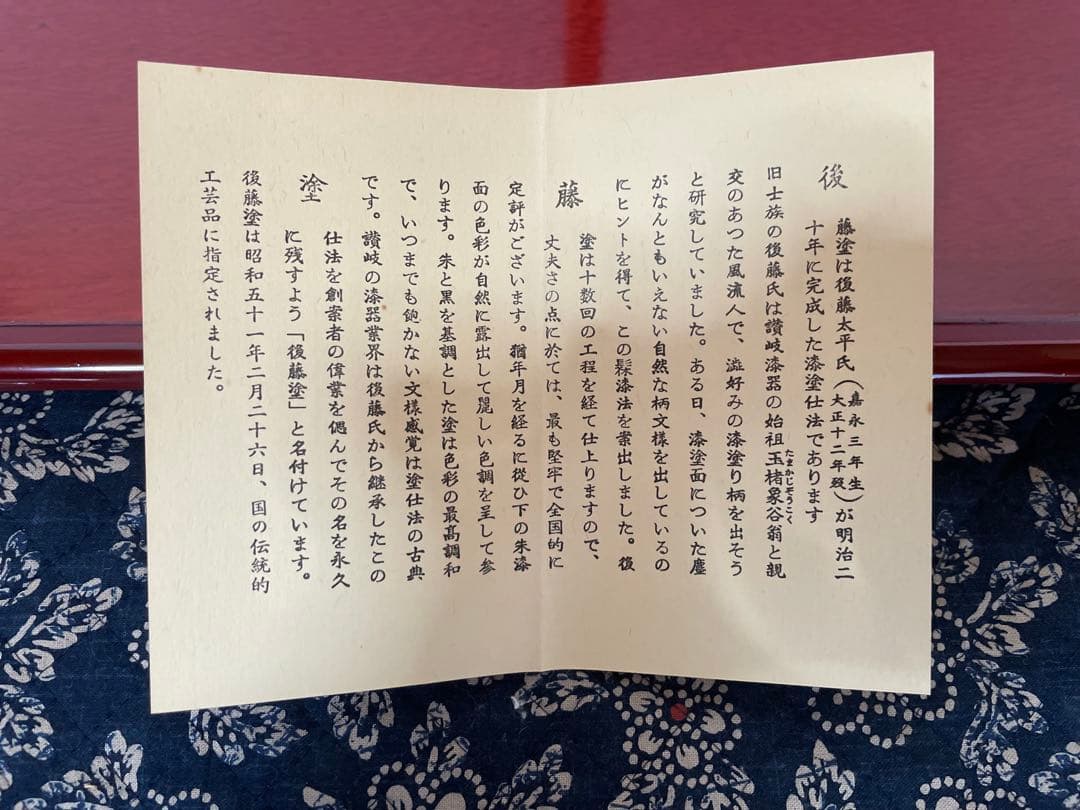 後
藤塗は後藤太平氏(嘉永三年生 大正十二年歿)が明治二
十年に完成した漆塗仕法であります
旧士族の後藤氏は讃岐漆器の始祖玉楮象谷翁と親
たまかじぞうこく
交のあつた風流人で、澁好みの漆塗り柄を出そう
と研究していました。ある日、漆塗面についた塵
がなんともいえない自然な柄文様を出しているの
にヒントを得て、この髹漆法を案出しました。後
藤
塗は十数回の工程を経て仕上りますので、
丈夫さの点に於ては、最も堅牢で全国的に
定評がございます。猶年月を経るに從ひ下の朱漆
面の色彩が自然に露出して麗しい色調を呈して参
ります。朱と黒を基調とした塗は色彩の最高調和
で、いつまでも飽かない文様感覚は塗仕法の古典
です。讃岐の漆器業界は後藤氏から継承したこの
塗
仕法を創案者の偉業を偲んでその名を永久
に残すよう「後藤塗」と名付けています。
後藤塗は昭和五十一年二月二十六日、国の伝統的
工芸品に指定されました。